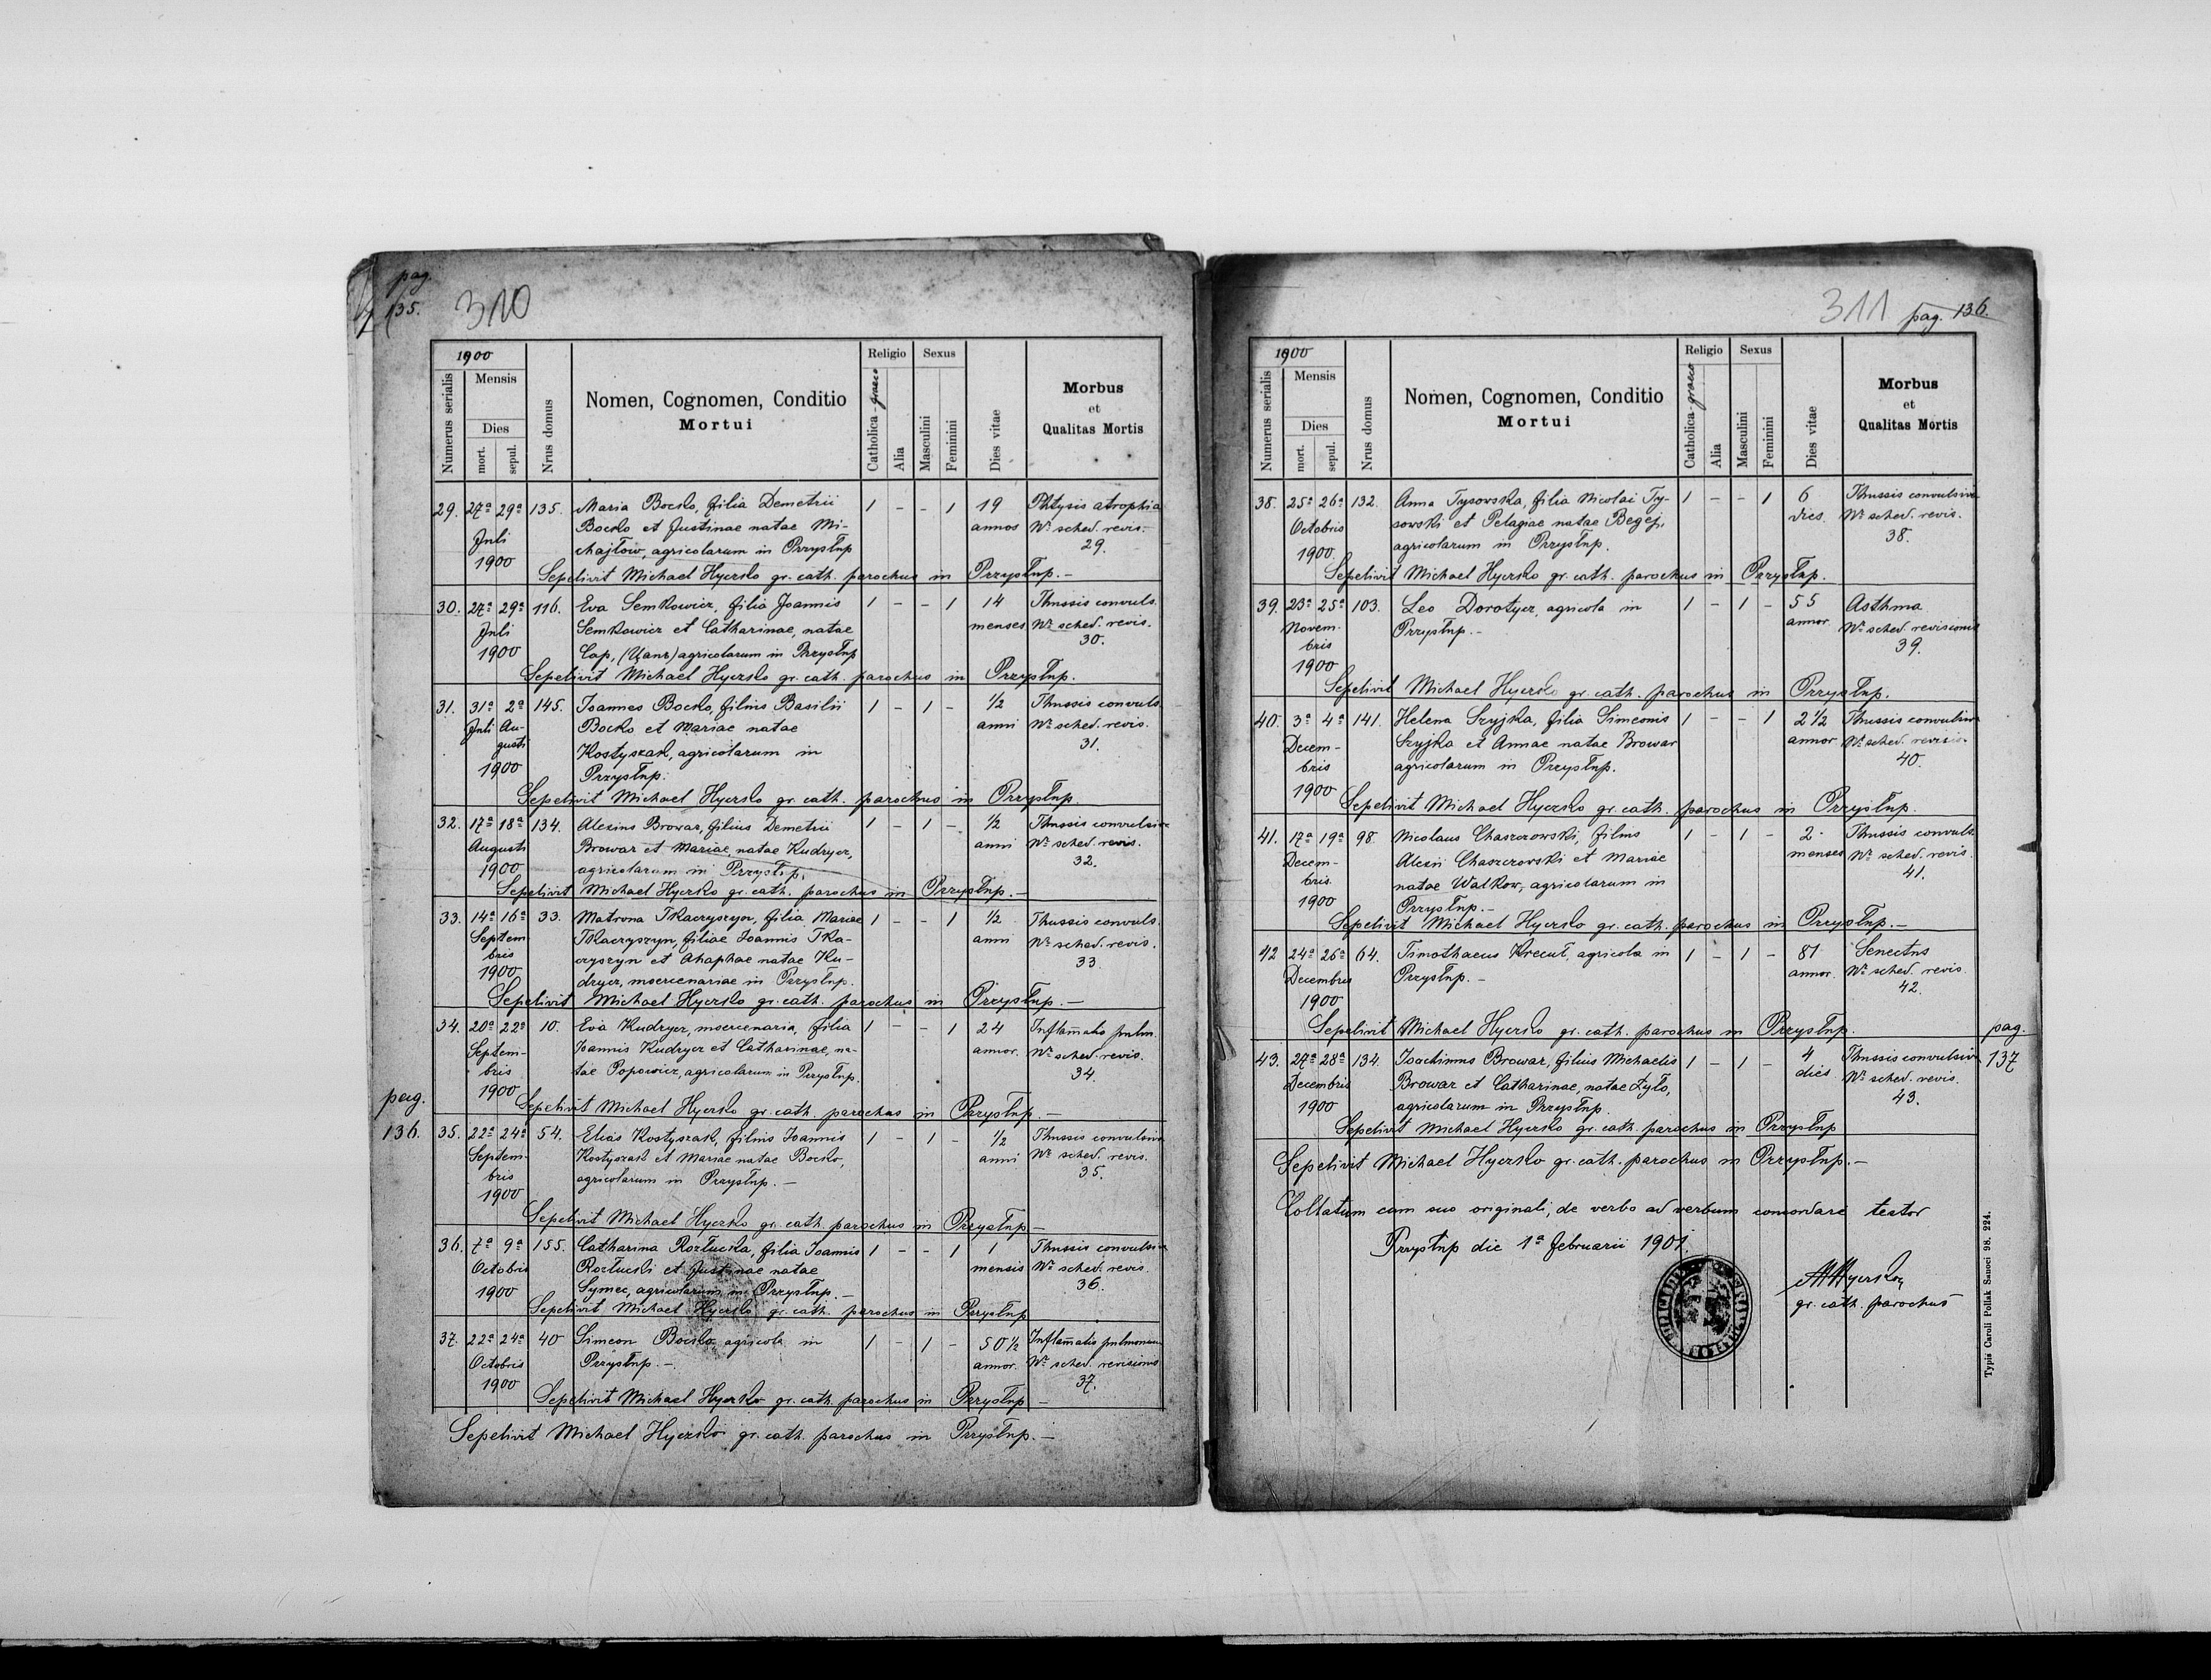 pag.
135.
310
1900
Numerus serialis
Mensis
Dies
mort.
sepul.
Nrus domus
Nomen, Cognomen, Conditio
Mortui
Religio
Catholica-graeco
Alia
Sexus
Masculini
Feminini
Dies vitae
Morbus
et
Qualitas Mortis
29. 27a 29a 135. Maria Bocko, filia Demetrii 1 - - 1 19 Phtysis atrophia
Juli Bocko et Justinae natae Mi- annos Nr sched. revis.
1900 chajłow, agricolarum in Przysłup 29.
Sepelivit Michael Hyczko gr. cath. parochus in Przysłup. -
30. 27a 29a 116. Eva Semkowicz, filia Joannis 1 - - 1 14 Thussis convuls.
Juli Semkowicz et Catharinae, natae menses Nr sched. revis.
1900 Cap, (Цапъ) agricolarum in Przysłup 30.
Sepelivit Michael Hyczko gr. cath. parochus in Przysłup.
31. 31a 2a 145. Joannes Bocko, filius Basilii 1 - 1 - 1/2 Thussis convuls.
Juli Au- Bocko et Mariae natae anni Nr sched. revis.
gusti Kostyszak, agricolarum in 31.
1900 Przysłup.
Sepelivit Michael Hyczko gr. cath. parochus in Przysłup.
32. 17a 18a 134. Alexius Browar, filius Demetrii 1 - 1 - 1/2 Thussis convulsiva
Augusti Browar et Mariae natae Kudrycz, anni Nr sched. revis.
1900 agricolarum in Przysłup. 32.
Sepelivit Michael Hyczko gr. cath. parochus in Przysłup. -
33. 14a 16a 33. Matrona Tkaczyszyn, filia Mariae 1 - - 1 1/2 Thussis convuls.
Septem- Tkaczyszyn, filiae Joannis Tka- anni Nr sched. revis.
bris czyszyn et Ahaphae natae Ku- 33.
1900 drycz, mercenariae in Przysłup.
Sepelivit Michael Hyczko gr. cath. parochus in Przysłup. -
34. 20a 22a 10. Eva Kudrycz, mercenaria, filia 1 - - 1 24 Inflam̄atio pulm.
Septem- Joannis Kudrycz et Catharinae, na- annor. Nr sched. revis.
bris tae Popowicz, agricolarum in Przysłup. 34.
1900
Sepelivit Michael Hyczko gr. cath. parochus in Przysłup. -
pag.
136.
35. 22a 24a 54. Elias Kostyszak, filius Joannis 1 - 1 - 1/2 Thussis convulsiva
Septem- Kostyszak et Mariae natae Bocko, anni Nr sched. revis.
bris agricolarum in Przysłup. - 35.
1900
Sepelivit Michael Hyczko gr. cath. parochus in Przysłup -
36. 7a 9a 155. Catharina Rozłucka, filia Joannis 1 - - 1 1 Thussis convulsiva
Octobris Rozłucki et Justinae natae mensis Nr sched. revis.
1900 Symec, agricolarum in Przysłup. - 36.
Sepelivit Michael Hyczko gr. cath. parochus in Przysłup
37. 22a 24a 40 Simeon Bocko, agricola in 1 - 1 - 50 1/2 Inflam̄atio pulmonum
Octobris Przysłup. - annor. Nr sched. revisionis
1900 37.
Sepelivit Michael Hyczko gr. cath. parochus in Przysłup -
Sepelivit Michael Hyczko gr. cath. parochus in Przysłup. -
311 pag. 136.
1900
Numerus serialis
Mensis
Dies
mort.
sepul.
Nrus domus
Nomen, Cognomen, Conditio
Mortui
Religio
Catholica-graeco
Alia
Sexus
Masculini
Feminini
Dies vitae
Morbus
et
Qualitas Mortis
38. 25a 26a 132. Anna Tysowska, filia Nicolai Ty- 1 - - 1 6 Thussis convulsiva
Octobris sowski et Pelagiae natae Begej, dies. Nr sched. revis.
1900. agricolarum in Przysłup. 38.
Sepelivit Michael Hyczko gr. cath. parochus in Przysłup.
39. 23a 25a 103. Leo Dorotycz, agricola in 1 - 1 - 55 Asthma
Novem- Przysłup. - annor. Nr sched. revisionis
bris 39.
1900
Sepelivit Michael Hyczko gr. cath. parochus in Przysłup.
40. 3a 4a 141. Helena Szyjka, filia Simeonis 1 - - 1 2 1/2 Thussis convulsiva
Decem- Szyjka et Annae natae Browar annor Nr sched. revisio-
bris agricolarum in Przysłup. 40.
1900
Sepelivit Michael Hyczko gr. cath. parochus in Przysłup.
41. 17a 19a 98. Nicolaus Chaszczowski, filius 1 - 1 - 2 Thussis convuls.
Decem- Alexii Chaszczowski et Mariae menses Nr sched. revis.
bris natae Walkow, agricolarum in 41.
1900 Przysłup. -
Sepelivit Michael Hyczko gr. cath. parochus in Przysłup. -
42 24a 26a 64. Timothaeus Krecul, agricola in 1 - 1 - 81 Senectus
Decembris Przysłup. - annor. Nr sched. revis.
1900 42.
Sepelivit Michael Hyczko gr. cath. parochus in Przysłup.
pag.
137
43. 27a 28a 134. Joachimus Browar, filius Michaelis 1 - 1 - 4 Thussis convulsiva
Decembris Browar et Catharinae, natae Żyło, dies Nr sched. revis.
1900 agricolarum in Przysłup. 43.
Sepelivit Michael Hyczko gr. cath. parochus in Przysłup
Sepelivit Michael Hyczko gr. cath. parochus in Przysłup. -
Collatum cum suo originali, de verbo ad verbum concordare testor
Przysłup die 1a Februarii 1901.
MHyczko,
gr. cath. parochus
Typis Caroli Pollak Sanoci 98. 224.